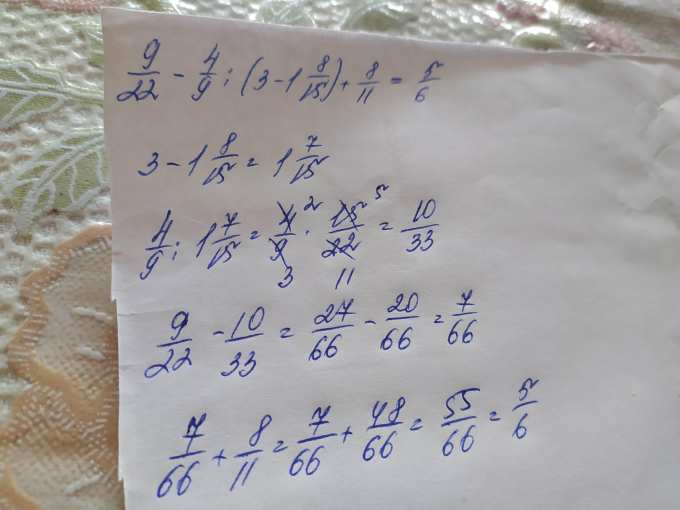 9/22 - 4/9 : (3 - 1 8/15) + 8/11 = 5/6
3 - 1 8/15 = 1 7/15
4/9 : 1 7/15 = 4/9 · 15/22 = 10/33 2 5 3 11
9/22 - 10/33 = 27/66 - 20/66 = 7/66
7/66 + 8/11 = 7/66 + 48/66 = 55/66 = 5/6